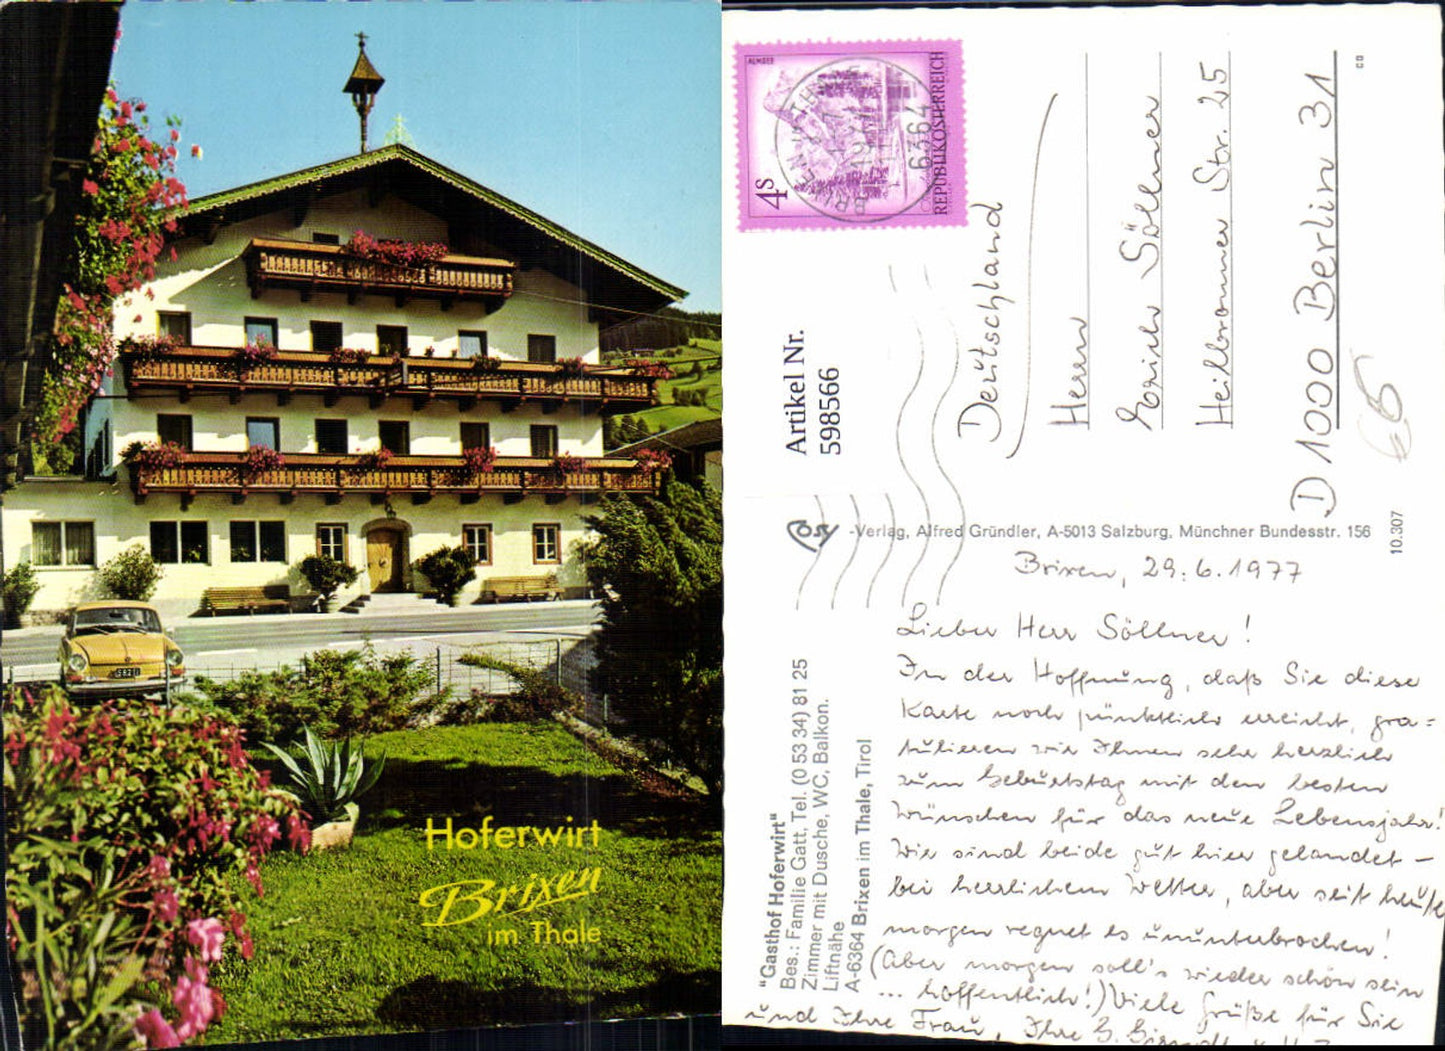 Hoferwirt
Brixen
im Thale
ALMSEE
4 S
REPUBLIK ÖSTERREICH
6364
Artikel Nr.
598566
Deutschland
Herrn
Erich Söllner
Heilbronner Str. 25
D 1000 Berlin 31
-Verlag, Alfred Gründler, A-5013 Salzburg, Münchner Bundesstr. 156
10.307
"Gasthof Hoferwirt"
Bes.: Familie Gatt, Tel. (0 53 34) 81 25
Zimmer mit Dusche, WC, Balkon.
Liftnähe
A-6364 Brixen im Thale, Tirol
Brixen, 29.6.1977
Lieber Herr Söllner!
In der Hoffnung, daß Sie diese
Karte noch pünktlich erreicht, gra=
tulieren wir Ihnen sehr herzlich
zum Geburtstag mit den besten
Wünschen für das neue Lebensjahr!
Wir sind beide gut hier gelandet –
bei herrlichem Wetter, aber seit heute
morgen regnet es ununterbrochen!
(Aber morgen soll's wieder schön sein
... hoffentlich!) Viele Grüße für Sie
und Ihre Frau, Ihre